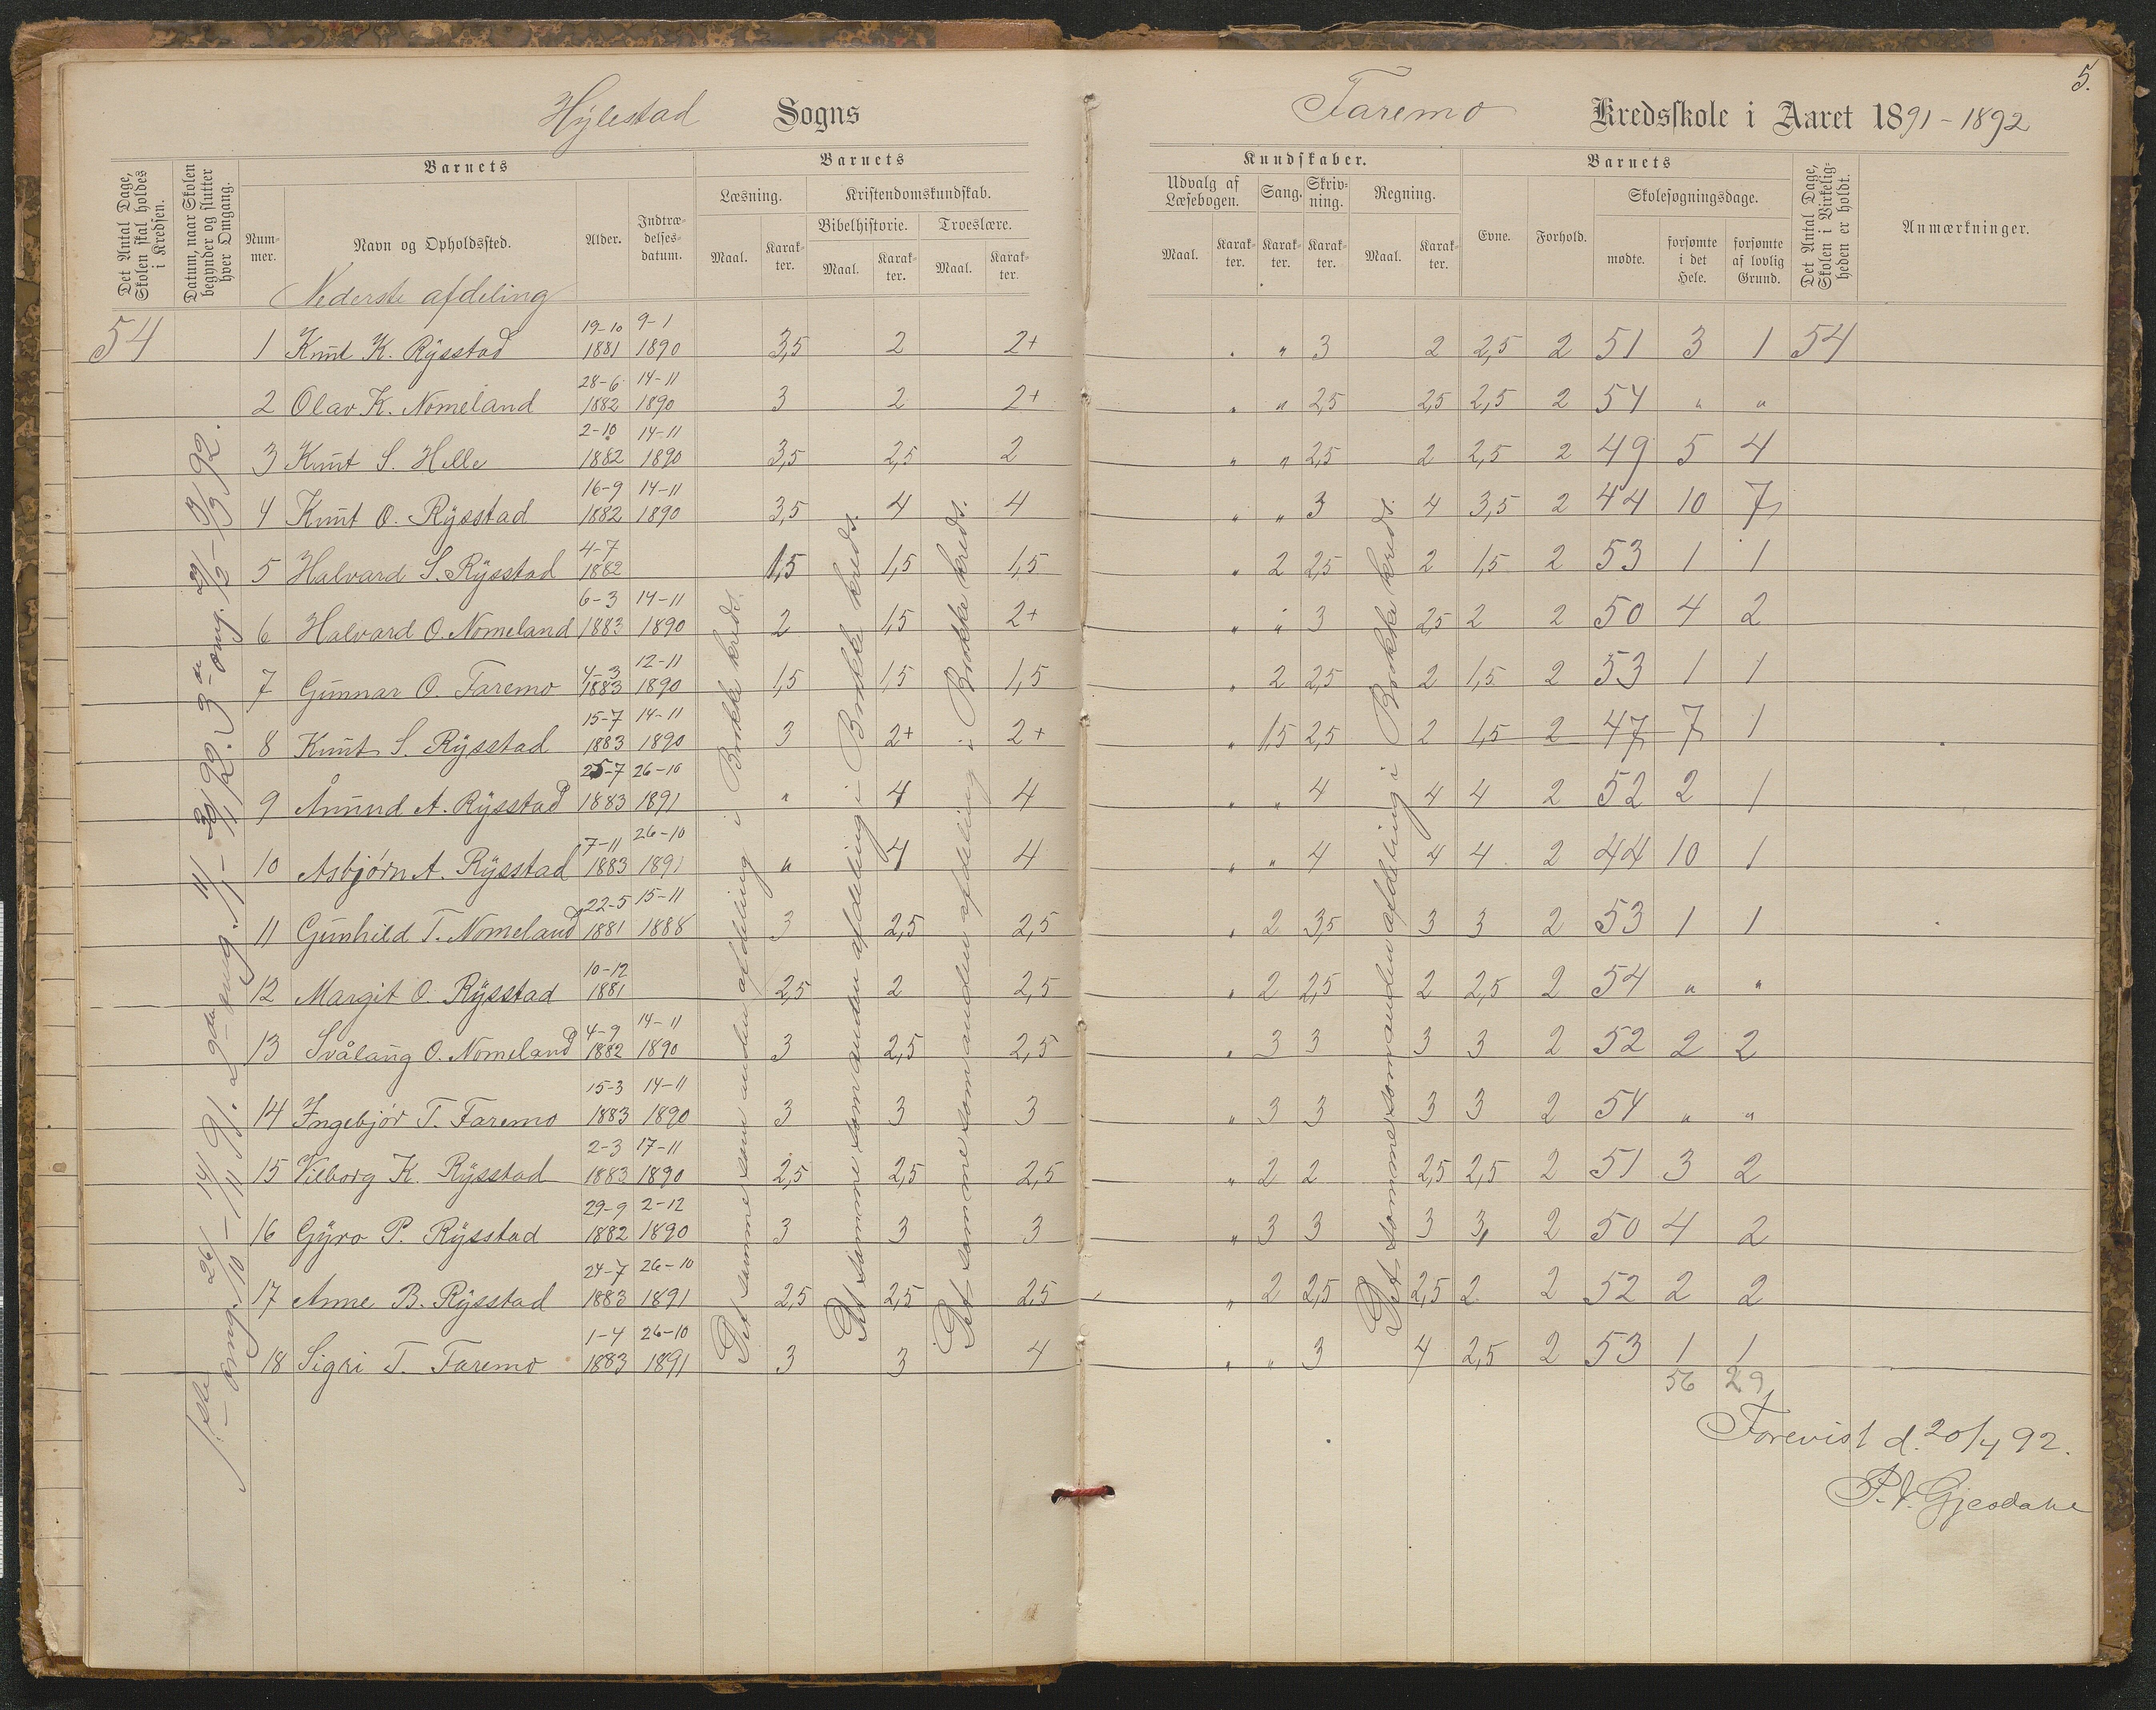 5.
Hylestad Sogns Faremo Kredsskole i Aaret 1891-1892
Det Antal Dage, Skolen skal holdes i Kredsen.
Datum, naar Skolen begynder og slutter hver Omgang.
Barnets
Nummer.
Navn og Opholdssted.
Alder.
Indtrædelsesdatum.
Barnets
Læsning.
Maal.
Karakter.
Kristendomskundskab.
Bibelhistorie.
Maal.
Karakter.
Troeslære.
Maal.
Karakter.
Kundskaber.
Udvalg af Læsebogen.
Maal.
Karakter.
Sang.
Karakter.
Skrivning.
Karakter.
Regning.
Maal.
Karakter.
Barnets
Evne.
Forhold.
Skolesøgningsdage.
mødte.
forsømte i det Hele.
forsømte af lovlig Grund.
Det Antal Dage, Skolen i Virkeligheden er holdt.
Anmærkninger.
Nederste afdeling
54 1 Knut K. Rysstad 19-10 1881 9-1 1890 3,5 2 2+ " " 3 2 2,5 2 51 3 1 54
2 Olav K. Nomeland 28-6 1882 14-11 1890 3 2 2+ " " 2,5 2,5 2,5 2 54 " "
3 Knut S. Helle 2-10 1882 14-11 1890 3,5 2,5 2 " " 2,5 2 2,5 2 49 5 4
4 Knut O. Rysstad 16-9 1882 14-11 1890 3,5 4 4 " " 3 4 3,5 2 44 10 7
5 Halvard S. Rysstad 4-7 1882 1,5 1,5 1,5 " 2 2,5 2 1,5 2 53 1 1
6 Halvard O. Nomeland 6-3 1883 14-11 1890 2 1,5 2+ " " 3 2,5 2 2 50 4 2
7 Gunnar O. Faremo 4-3 1883 12-11 1890 1,5 1,5 1,5 " 2 2,5 2 1,5 2 53 1 1
8 Knut S. Rysstad 15-7 1883 14-11 1890 3 2+ 2+ " 1,5 2,5 2 1,5 2 47 7 1
9 Åmund A. Rysstad 25-7 1883 26-10 1891 " 4 4 " " 4 4 4 2 52 2 1
10 Asbjørn A. Rysstad 7-11 1883 26-10 1891 " 4 4 " " 4 4 4 2 44 10 1
11 Gunhild T. Nomeland 22-5 1881 15-11 1888 3 2,5 2,5 " 2 3,5 3 3 2 53 1 1
12 Margit O. Rysstad 10-12 1881 2,5 2 2,5 " 2 2,5 2 2,5 2 54 " "
13 Svålaug O. Nomeland 4-9 1882 14-11 1890 3 2,5 2,5 " 3 3 3 3 2 52 2 2
14 Ingebjør T. Faremo 15-3 1883 14-11 1890 3 3 3 " 3 3 3 3 2 54 " "
15 Vilborg K. Rysstad 2-3 1883 17-11 1890 2,5 2,5 2,5 " 2 2 2,5 2,5 2 51 3 2
16 Gyro P. Rysstad 29-9 1882 2-12 1890 3 3 3 " 3 3 3 3 2 50 4 2
17 Anne B. Rysstad 24-7 1883 26-10 1891 2,5 2,5 2,5 " 2 2,5 2,5 2 2 52 2 2
18 Sigri T. Faremo 1-4 1883 26-10 1891 3 3 4 " " 3 4 2,5 2 53 1 1
56 29
1ste omg. 26/10 - 14/11 91. 2den omg. 11/1 - 30/1 92. 3die omg. 29/2 - 19/3 92.
Det samme som anden afdeling i Brokke kreds.
Det samme som anden afdeling i Brokke kreds.
Det samme som anden afdeling i Brokke kreds.
Det samme som anden afdeling i Brokke kreds.
Forevist d. 20/4 92.
P. V. Gjesdahl